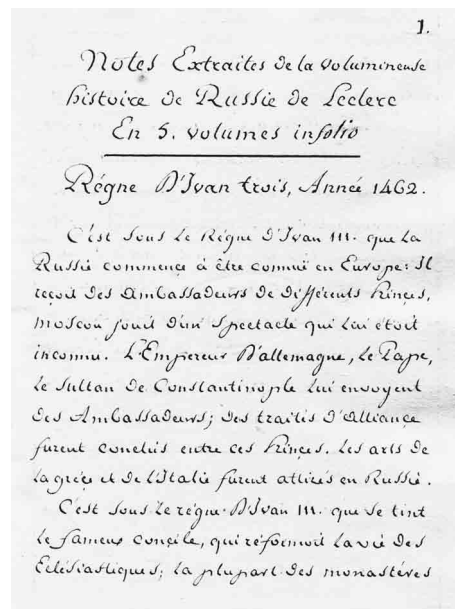 1.
Notes Extraites de la volumineuse
histoire de Russie de Leclerc
En 5. volumes infolio
Régne D'Ivan trois, Année 1462.
C'est sous le Régne D'Ivan III. que la
Russie commence à être connuë en Europe: Il
reçoit des Ambassadeurs de différents Princes,
Moscou jouit d'un spectacle qui lui étoit
inconnu. L'Empereur D'allemagne, le Pape,
le sultan de Constantinople lui envoyent
des Ambassadeurs; des traités d'Alliance
furent conclus entre ces Princes. les arts de
la gréce et de l'Italie furent attirés en Russie.
C'est sous le régne D'Ivan III. que se tint
le fameux concile, qui réformoit la vie des
Eclésiastiques; la plupart des monastéres